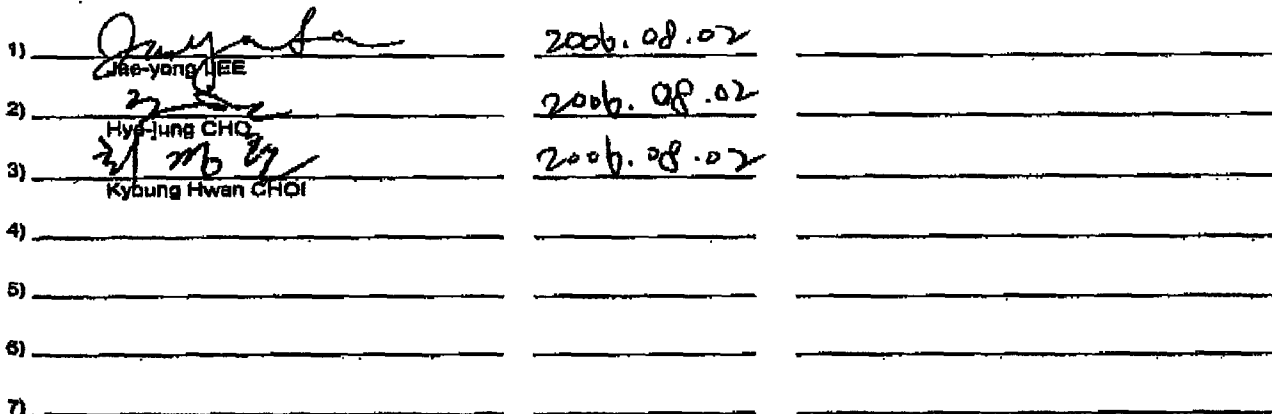 1) 2006.08.02
Jae-yong LEE
2) 2006.08.02
Hye-jung CHO
3) 2006.08.02
Kyoung Hwan CHOI
4)
5)
6)
7)